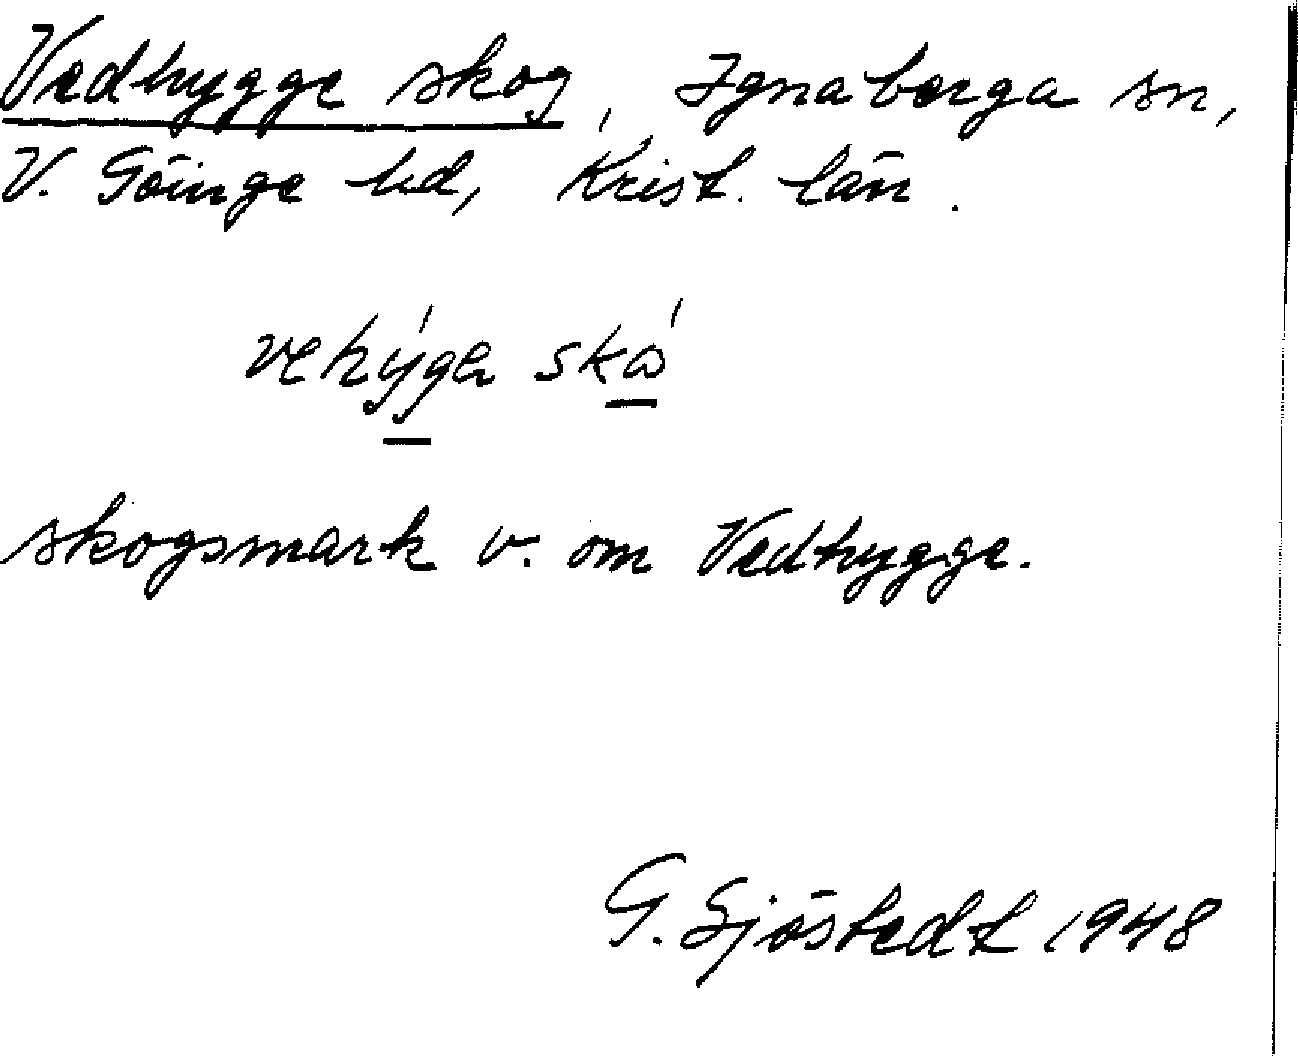 Vedhygge skog, Ignaberga sn,
V. Göinge hd, Krist. län.
vehýga skó
skogsmark v. om Vedhygge.
G. Sjöstedt 1948